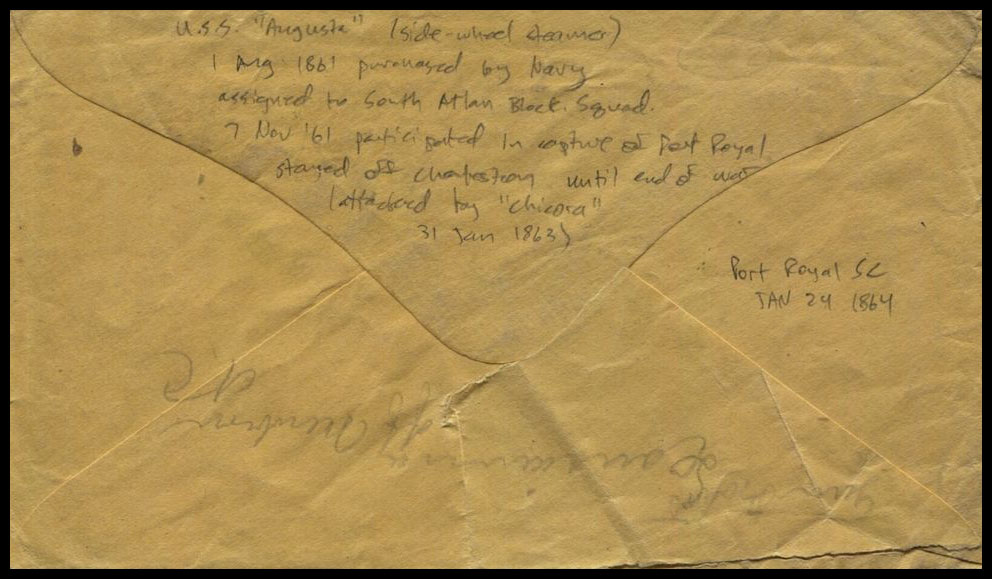 U.S.S. "Augusta" (side-wheel steamer)
1 Aug 1861 purchased by Navy
assigned to South Atlan Block. Squad.
7 Nov '61 participated in capture of Port Royal
stayed off Charleston until end of war
(attacked by "Chicora"
31 Jan 1863)
Port Royal SC
JAN 24 1864